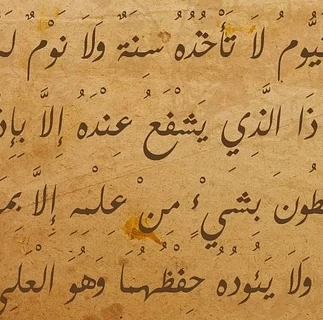 يُّومُ لَا تَأْخُذُهُ سِنَةٌ وَلَا نَوْمٌ لَ
ذَا الَّذِي يَشْفَعُ عِنْدَهُ إِلَّا بِإِذ
طُونَ بِشَيْءٍ مِنْ عِلْمِهِ إِلَّا بِمَ
وَلَا يَئُودُهُ حِفْظُهُمَا وَهُوَ الْعَلِي